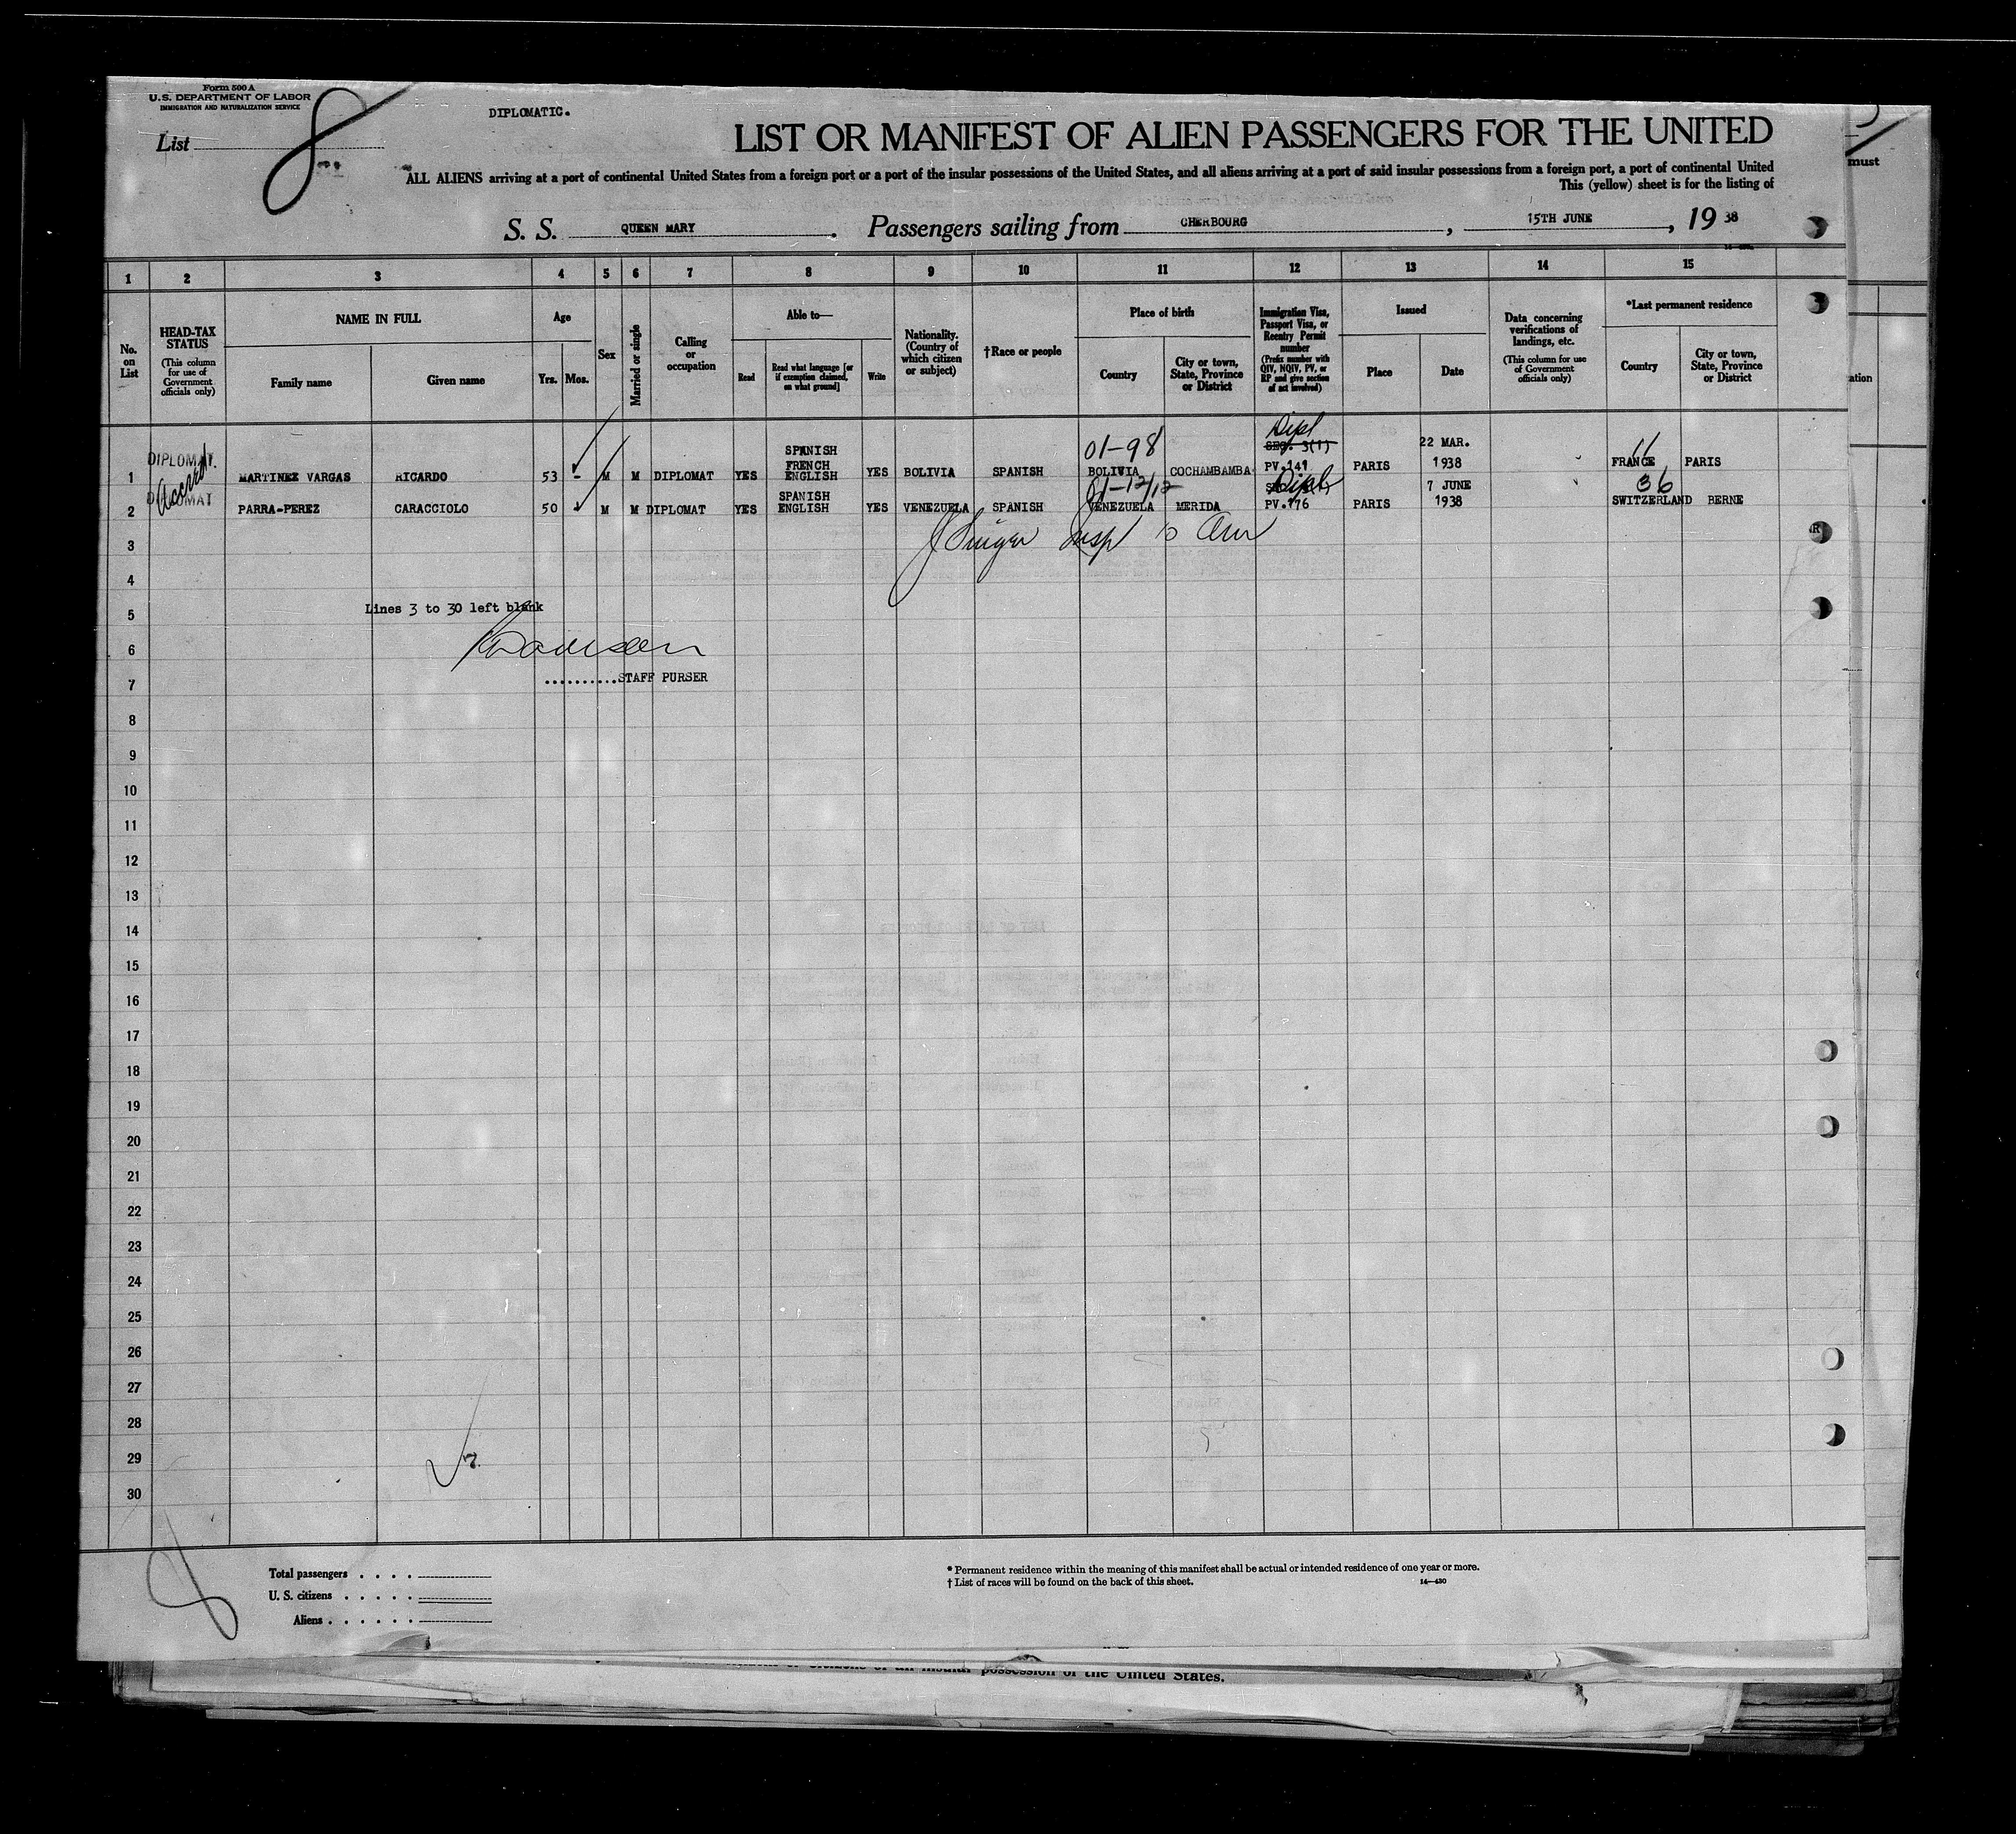 Form 500 A
U.S. DEPARTMENT OF LABOR
IMMIGRATION AND NATURALIZATION SERVICE
List
8
DIPLOMATIC.
LIST OR MANIFEST OF ALIEN PASSENGERS FOR THE UNITED
ALL ALIENS arriving at a port of continental United States from a foreign port or a port of the insular possessions of the United States, and all aliens arriving at a port of said insular possessions from a foreign port, a port of continental United
This (yellow) sheet is for the listing of
must
S. S. QUEEN MARY. Passengers sailing from CHERBOURG, 15TH JUNE, 19 38
1 2 3 4 5 6 7 8 9 10 11 12 13 14 15
No. on List
HEAD-TAX STATUS
(This column for use of Government officials only)
NAME IN FULL
Family name
Given name
Age
Yrs. Mos.
Sex
Married or single
Calling or occupation
Able to—
Read
Read what language [or if exemption claimed, on what ground]
Write
Nationality. (Country of which citizen or subject)
†Race or people
Place of birth
Country
City or town, State, Province or District
Immigration Visa, Passport Visa, or Reentry Permit number
(Prefix number with QIV, NQIV, PV, or RP and give section of act involved)
Issued
Place
Date
Data concerning verifications of landings, etc.
(This column for use of Government officials only)
*Last permanent residence
Country
City or town, State, Province or District
ation
DIPLOMAT.
SPANISH 01-98 Dipl SEC. 3(1) 22 MAR.
1 MARTINEZ VARGAS RICARDO 53 - M M DIPLOMAT YES FRENCH ENGLISH YES BOLIVIA SPANISH BOLIVIA COCHAMBAMBA PV.141 PARIS 1938 FRANCE PARIS
DIPLOMAT
SPANISH Dipl 7 JUNE 36
2 PARRA-PEREZ CARACCIOLO 50 M M DIPLOMAT YES ENGLISH YES VENEZUELA SPANISH VENEZUELA MERIDA PV.176 PARIS 1938 SWITZERLAND BERNE
3
4
5 Lines 3 to 30 left blank
6
7 ..........STAFF PURSER
8
9
10
11
12
13
14
15
16
17
18
19
20
21
22
23
24
25
26
27
28
29
30
8
Total passengers . . . .
U. S. citizens . . . . .
Aliens . . . . . .
* Permanent residence within the meaning of this manifest shall be actual or intended residence of one year or more.
† List of races will be found on the back of this sheet.
14—430
possession of the United States.